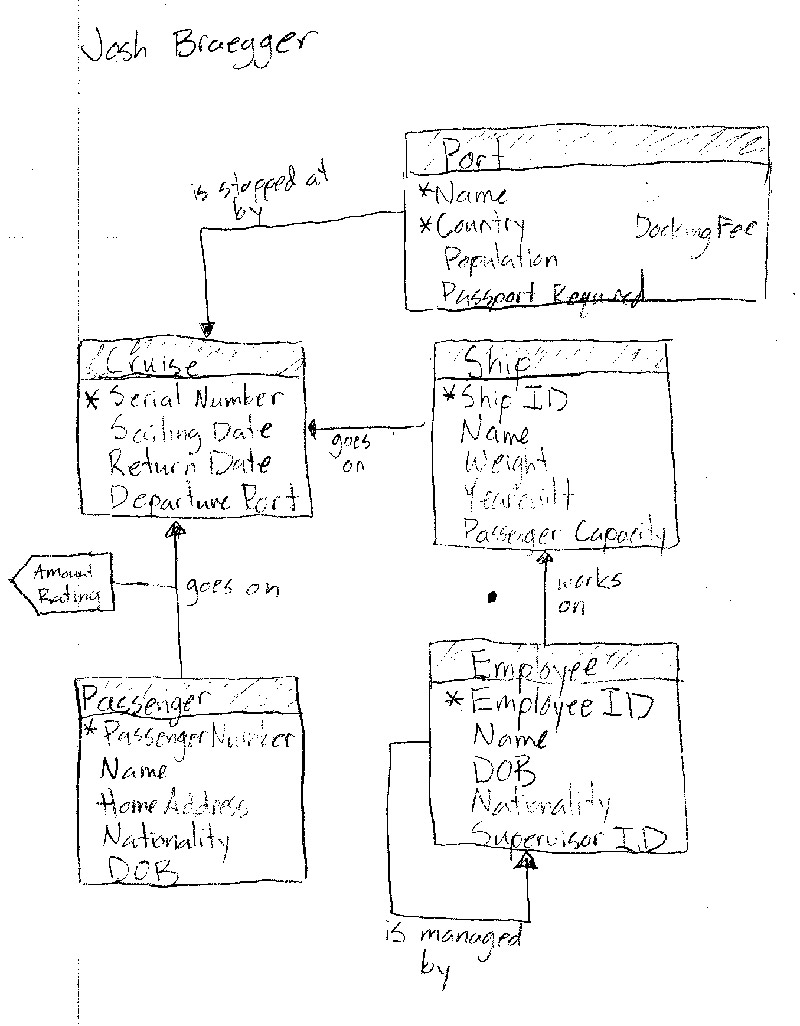 Josh Braegger
Port
*Name
*Country
Docking Fee
Population
Passport Required
is stopped at
by
Cruise
* Serial Number
Sailing Date
Return Date
Departure Port
goes
on
Ship
*Ship ID
Name
Weight
Yearbuilt
Passenger Capacity
Amount
Rating
goes on
works
on
Passenger
*Passenger Number
Name
Home Address
Nationality
DOB
Employee
*Employee ID
Name
DOB
Nationality
Supervisor ID
is managed
by